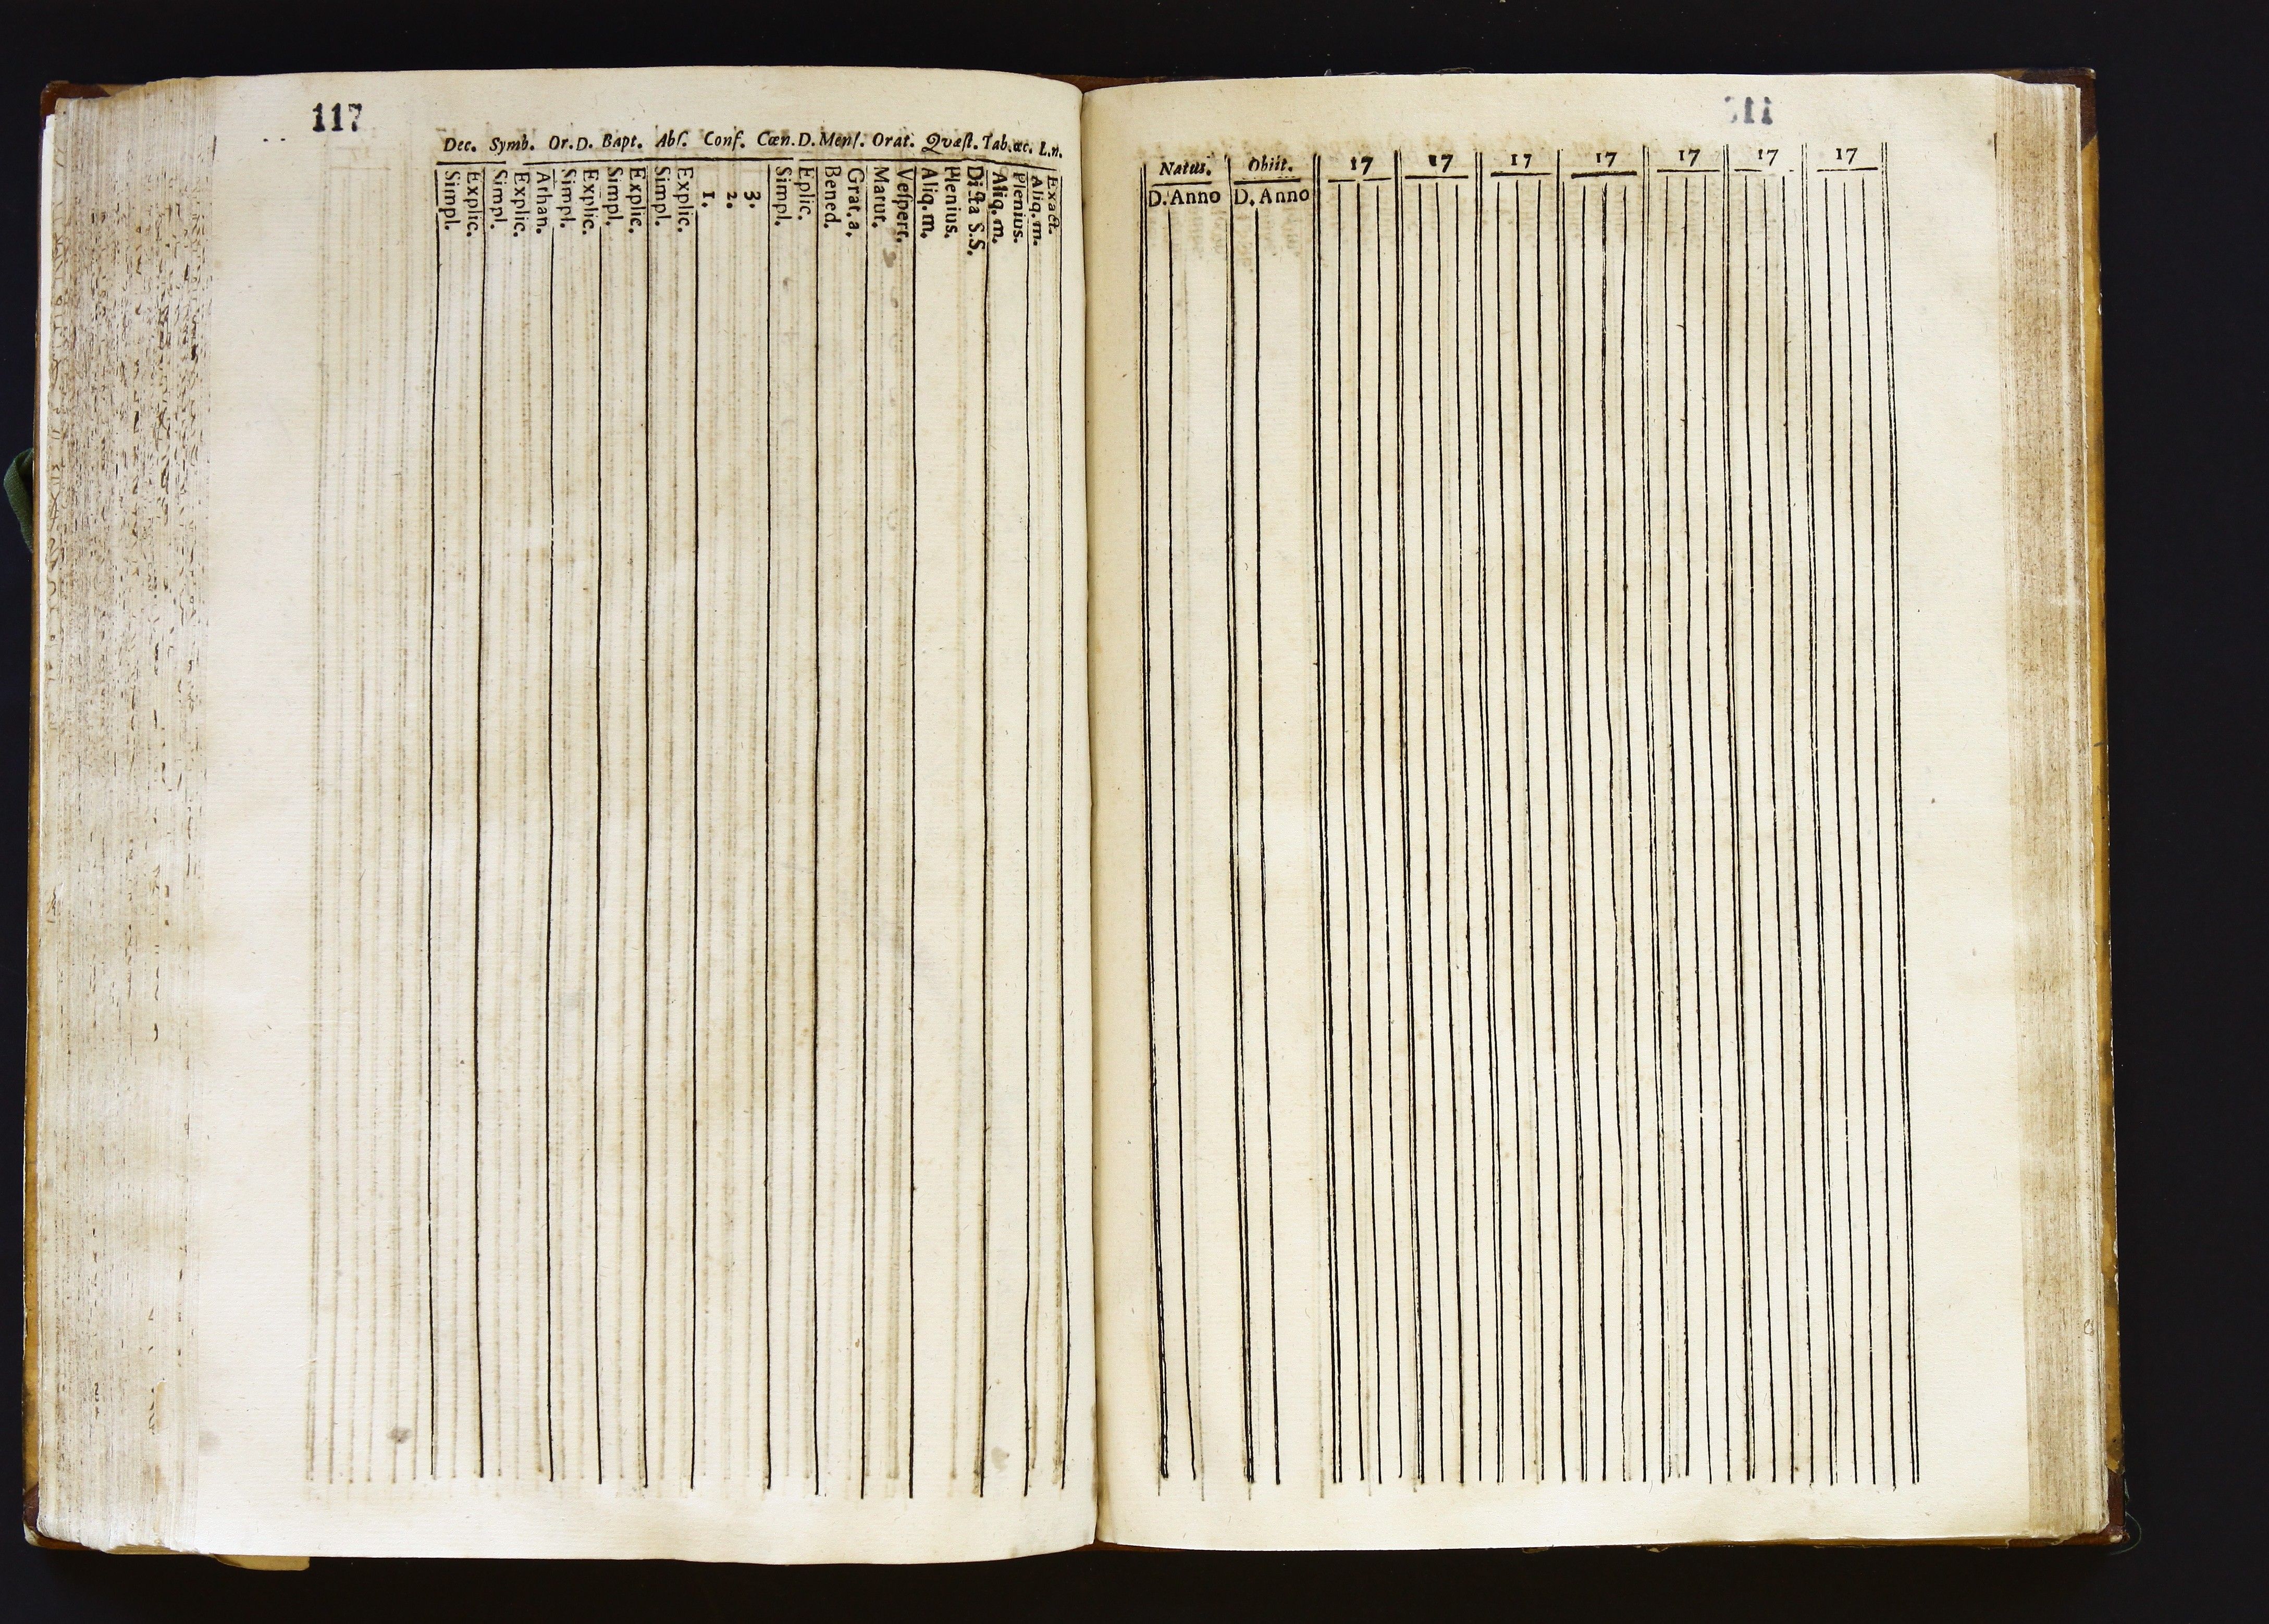 117
Dec. Symb. Or.D. Bapt. Abſ. Conf. Cœn.D. Menſ. Orat. Qvæſt. Tab.œc. L.n.
Simpl.
Explic.
Simpl.
Explic.
Athan.
Simpl.
Explic.
Simpl.
Explic.
Simpl.
Explic.
1.
2.
3.
Simpl.
Eplic.
Bened.
Grat.a.
Matut.
Veſpert.
Aliq.m.
Plenius.
Dicta S.S.
Aliq.m.
Plenius.
Aliq.m.
Exact.
Natus. Obiit. 17 17 17 17 17 17 17
D. Anno D. Anno